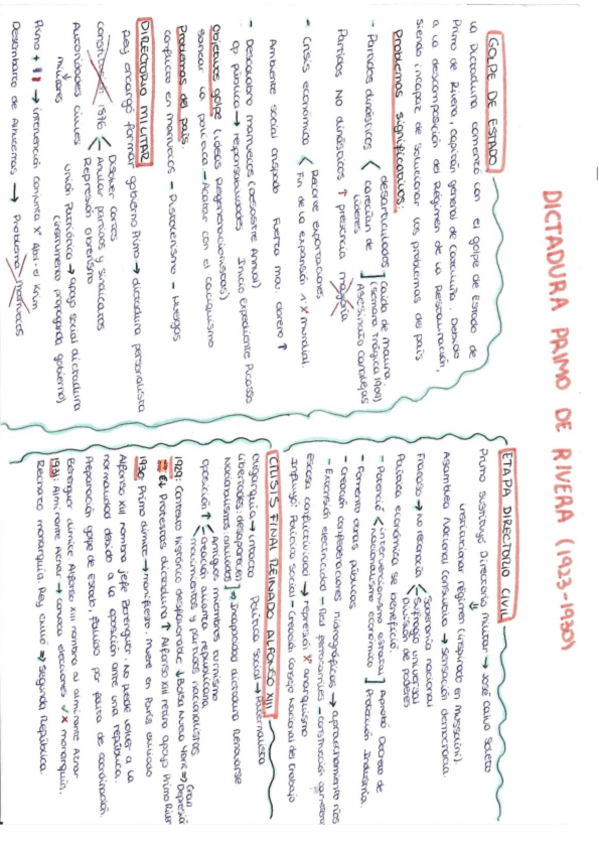 DICTADURA PRIMO DE RIVERA (1923-1930)
GOLPE DE ESTADO
La Dictadura comenzó con el golpe de Estado de
Primo de Rivera, capitán general de Cataluña. Debido
a la descomposición del Régimen de la Restauración,
siendo incapaz de solucionar los problemas del país
Problemas significativos
- Partidos dinásticos < desarticulados ] caída de Maura
carecían de líderes (Semana Trágica 1909)
Asesinato Canalejas
Partidos NO dinásticos ↑ presencia
- Crisis económica < Recorte exportaciones
Fin de la expansión 1ª X mundial.
Ambiente social crispado Fuerza mov. obrero ↑
- Descalabro marruecos (desastre Annual)
Op pública → responsabilidades Inicio Expediente Picasso
Objetivos golpe (ideas Regeneracionistas)
sanear la política - Acabar con el caciquismo
Problemas del país
conflicto en marruecos - Pistolerismo - Huelgas
DIRECTORIO MILITAR
Rey encargó formar gobierno Primo → dictadura personalista
constitución 1876 < Disolver cortes
Anular partidos y sindicatos
Represión obrerismo
Autoridades civiles
↓
militares
Unión Patriótica → apoyo social dictadura
(instrumento propaganda gobierno)
Primo + → intervención conjunta X Abd-el Krim
Desembarco de Alhucemas → Problema marruecos
ETAPA DIRECTORIO CIVIL
Primo sustituyó Directorio militar → José Calvo Sotelo
institucionar régimen (inspirado en Mussolini).
Asamblea Nacional Consultiva → sensación democracia.
Fracaso → no reconocía < Soberanía nacional
Sufragio universal
División de poderes
Política económica se benefició.
- Potenció < intervencionismo estatal ] Aprobó Decreto de
nacionalismo económico Protección Industria.
- Fomento obras públicas
- Creación confederaciones hidrográficas → aprovechamiento ríos
- Extensión electricidad - Red ferrocarriles - construcción carreteras
escasa conflictividad → represión X anarquismo
Influyó Política social - Creación Consejo Nacional del trabajo
CRISIS FINAL REINADO ALFONSO XIII
oligarquía → intacta Política social → Paternalista
Libertades: desaparecen ] ⇒ Incapacidad dictadura renovarse
Nacionalismos anulados
oposición ↑ < Antiguos miembros turnismo
creación alianza republicana
movimientos y partidos nacionalistas
1929: Contexto histórico desfavorable ↓ Bolsa Nueva York ⇒ Gran Depresión
Protestas dictadura ↑ Alfonso XIII retiró apoyo Primo River
1930: Primo dimite → manifiesto. Muere en París exiliado
Alfonso XIII nombra jefe Berenguer. No puede volver a la
normalidad debido a la oposición ante una república.
Preparación golpe de Estado, fallido por falta de coordinación.
Berenguer dimite Alfonso XIII nombra al almirante Aznar
1931: Almirante Aznar → convoca elecciones ✓ X monarquía.
Rechazo monarquía. Rey exilió ⇒ Segunda República.